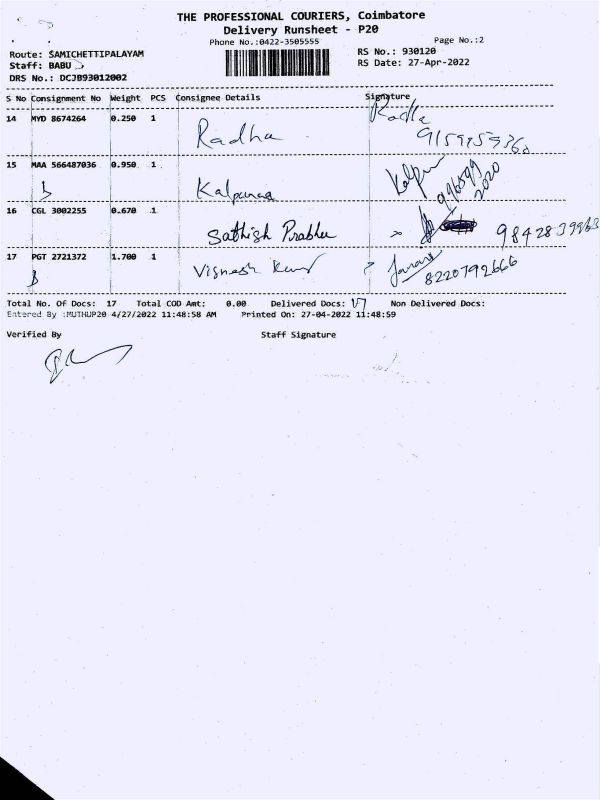 THE PROFESSIONAL COURIERS, Coimbatore
Delivery Runsheet - P20
Phone No.:0422-3505555 Page No.:2
Route: SAMICHETTIPALAYAM RS No.: 930120
Staff: BABU RS Date: 27-Apr-2022
DRS No.: DCJB93012002
S No Consignment No Weight PCS Consignee Details Signature
14 MYD 8674264 0.250 1 Radha Radha
15 MAA 566487036 0.950 1 Kalpanaa
2020
16 CGL 3002255 0.670 1 Sathish Prabhu 9842839963
17 PGT 2721372 1.700 1 8220792666
Total No. Of Docs: 17 Total COD Amt: 0.00 Delivered Docs: 17 Non Delivered Docs:
Entered By :MUTHUP20 4/27/2022 11:48:58 AM Printed On: 27-04-2022 11:48:59
Verified By Staff Signature